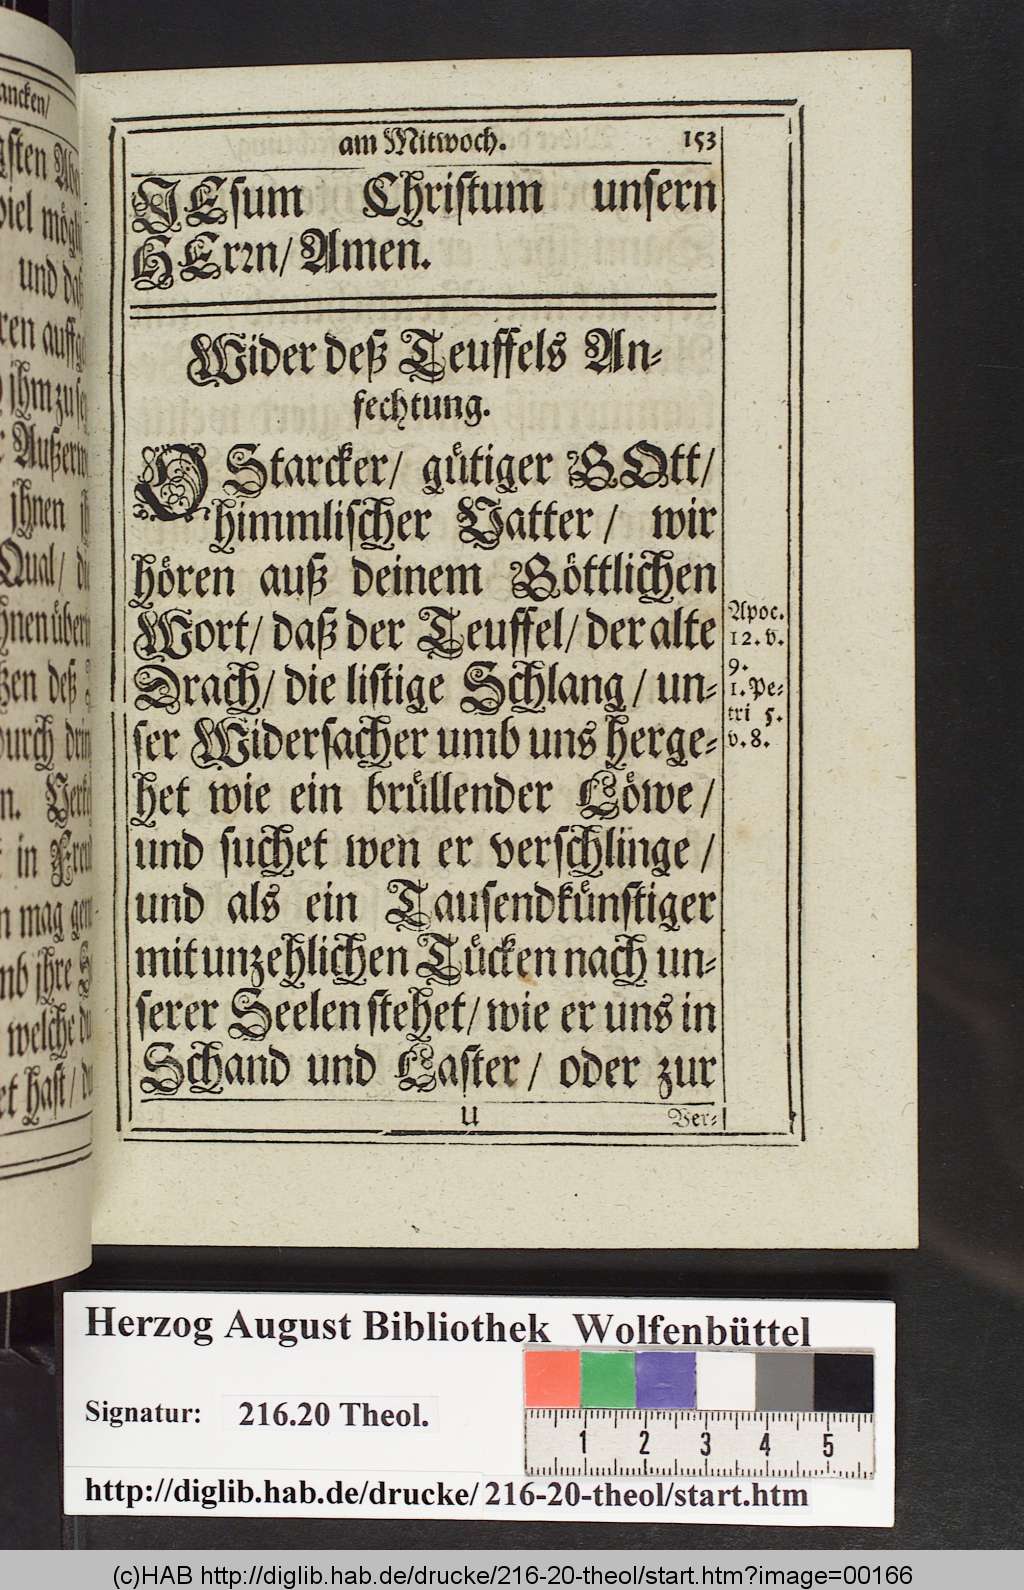 ancken/
gsten
viel mögl
und daß
ren auffg
jhm zu
Außerw
jhnen
Qual/
hnen über
tzen deß
durch drin
n. Verk
in Freu
n mag gen
mb jhre
welche du
et hast/
am Mitwoch. 153
JEsum Christum unsern
HErrn/ Amen.
Wider deß Teuffels An-
fechtung.
O Starcker/ gütiger GOtt/
himmlischer Vatter/ wir
hören auß deinem Göttlichen
Wort/ daß der Teuffel/ der alte
Drach/ die listige Schlang/ un-
ser Widersacher umb uns herge-
het wie ein brüllender Löwe/
und suchet wen er verschlinge/
und als ein Tausendkünstiger
mit unzehlichen Tücken nach un-
serer Seelen stehet/ wie er uns in
Schand und Laster/ oder zur
U Ver-
Apoc.
12. v.
9.
1. Pe-
tri 5.
v. 8.
Herzog August Bibliothek Wolfenbüttel
Signatur: 216.20 Theol.
1 2 3 4 5
http://diglib.hab.de/drucke/216-20-theol/start.htm
(c)HAB http://diglib.hab.de/drucke/216-20-theol/start.htm?image=00166